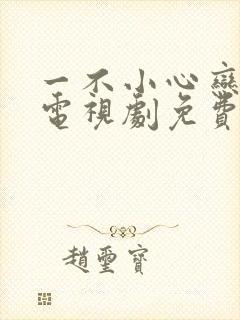 一不小心戀
電視劇免費
趙璽寶